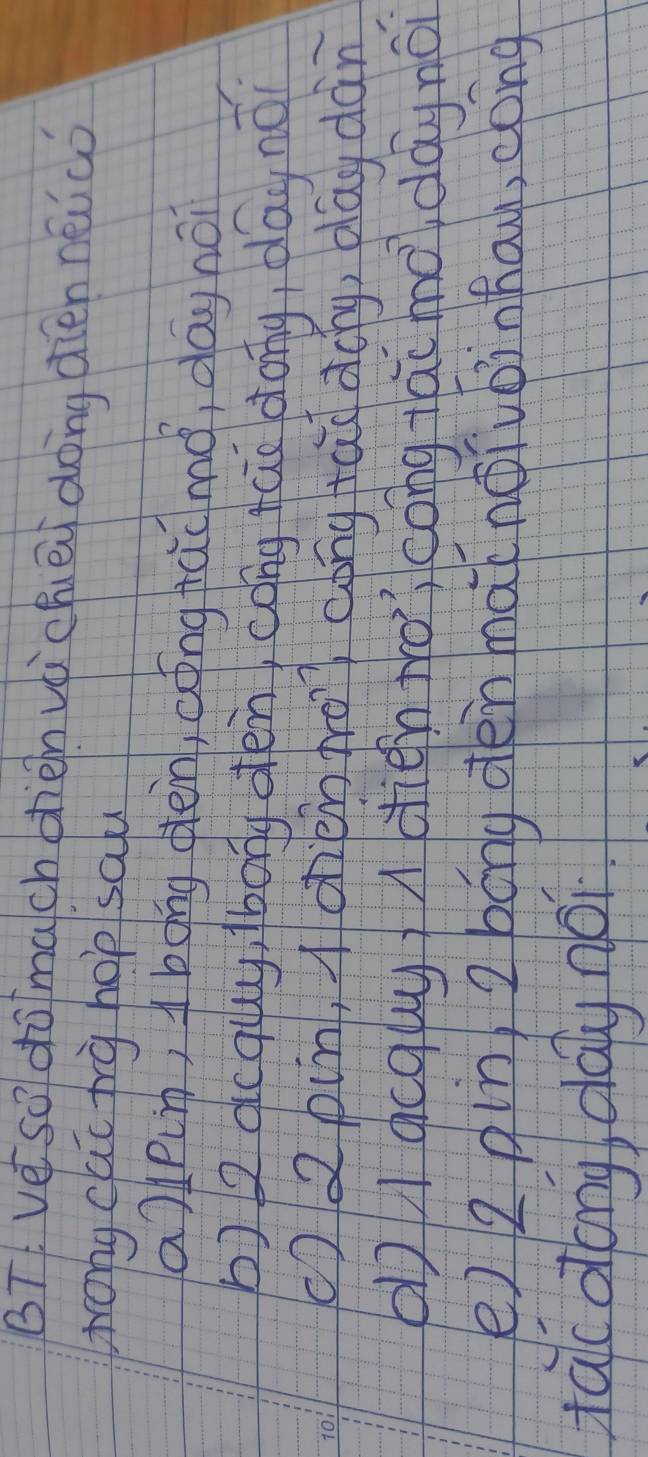 BT: Vẽ sơ đồ mạch điện và chiều dòng điện nếu có
trong các trg hợp sau
a) 1 Pin, 1 bóng đèn, công tắc mở, dây nối
b) 2 acquy, 1 bóng đèn, công tắc đóng, dây nối
c) 2 pin, 1 điện trở, công tắc đóng, dây dẫn
d) 1 acquy, 1 điện trở, công tắc mở, dây nối
e) 2 pin, 2 bóng đèn mắc nối với nhau, công
tắc đóng, dây nối.
10